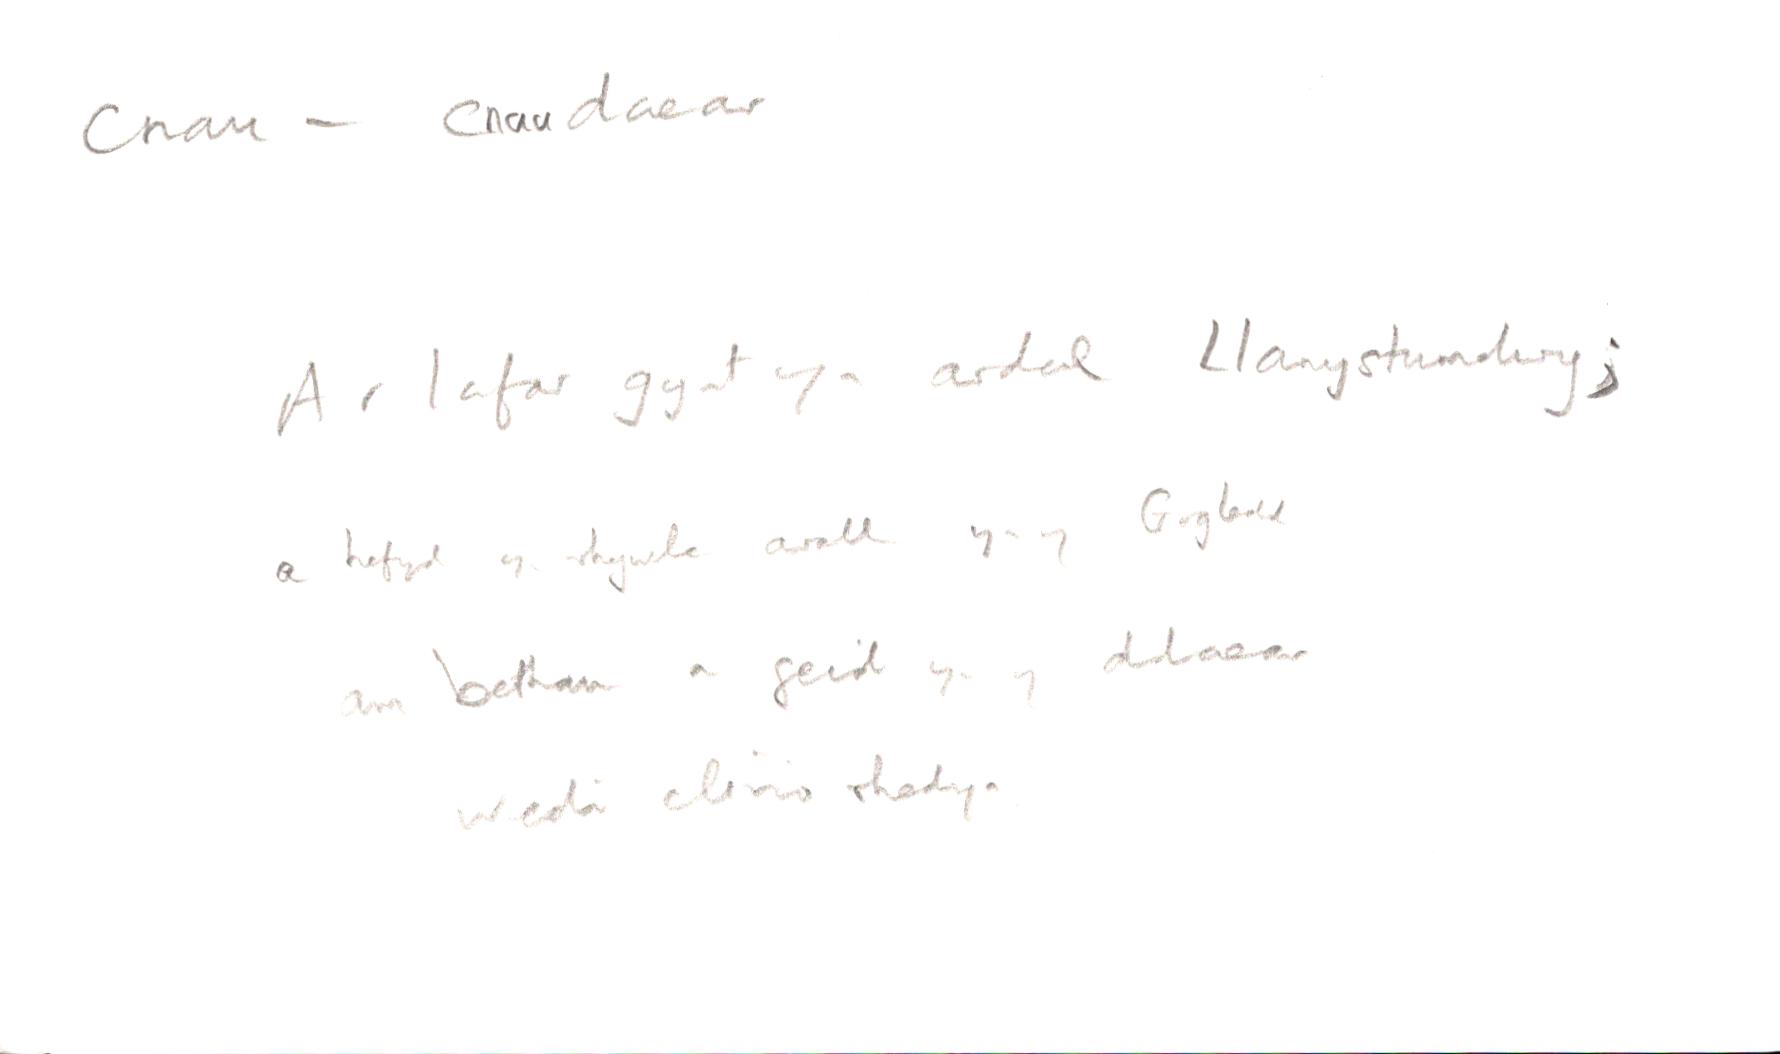 Cnau - cnau daear
Ar lafar gynt yn ardal Llanystumdwy;
a hefyd yn rhywle arall yn y Gogledd
am bethau a geid yn y ddaear
wedi clirio rhedyn